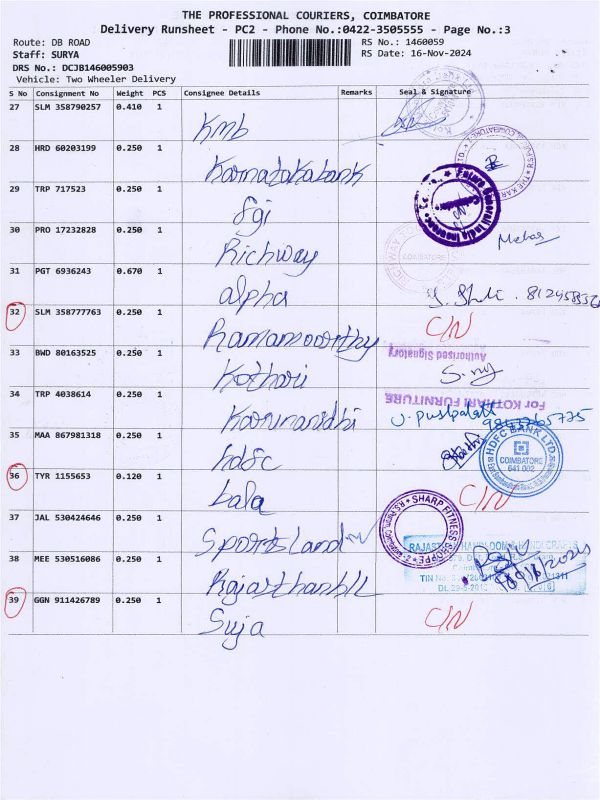 THE PROFESSIONAL COURIERS, COIMBATORE
Delivery Runsheet - PC2 - Phone No.:0422-3505555 - Page No.:3
Route: DB ROAD RS No.: 1460059
Staff: SURYA RS Date: 16-Nov-2024
DRS No.: DCJB146005903
Vehicle: Two Wheeler Delivery
S No Consignment No Weight PCS Consignee Details Remarks Seal & Signature
27 SLM 358790257 0.410 1 Kmb
28 HRD 60203199 0.250 1 Karnatakabank
29 TRP 717523 0.250 1 fgi
Future Generali India Insurance
30 PRO 17232828 0.250 1 Richway
RICHWAY COIMBATORE
31 PGT 6936243 0.670 1 alpha
32 SLM 358777763 0.250 1 Ramamoorthy C/N
33 BWD 80163525 0.250 1 Kothari
Authorised Signatory
For KOTHARI FURNITURE
34 TRP 4038614 0.250 1 Karunanidhi
35 MAA 867981318 0.250 1 hdfc
HDFC BANK LTD. COIMBATORE 641 002
36 TYR 1155653 0.120 1 bala C/N
37 JAL 530424646 0.250 1 Sportsland
SHARP FITNESS SHOPPE
38 MEE 530516086 0.250 1 Rajasthanhll
39 GGN 911426789 0.250 1 Suja C/N